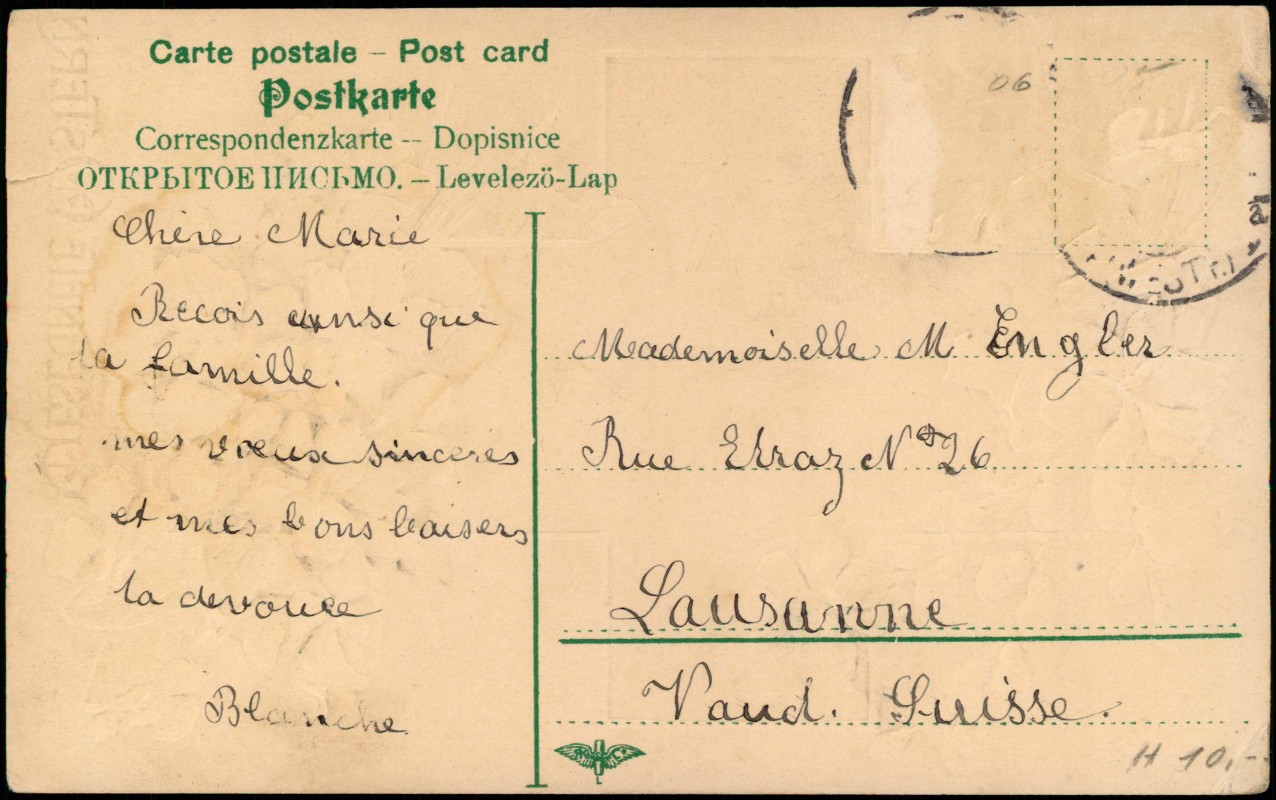 Carte postale – Post card
Postkarte
Correspondenzkarte -- Dopisnice
ОТКРЫТОЕ ПИСЬМО. – Levelezö-Lap
Chère Marie
Recois ainsi que
ta famille.
mes vœux sinceres
et mes bons baisers
ta devouée
Blanche
06
Mademoiselle M Engler
Rue Etraz Nº 26
Lausanne
Vaud. Suisse.
H 10,-